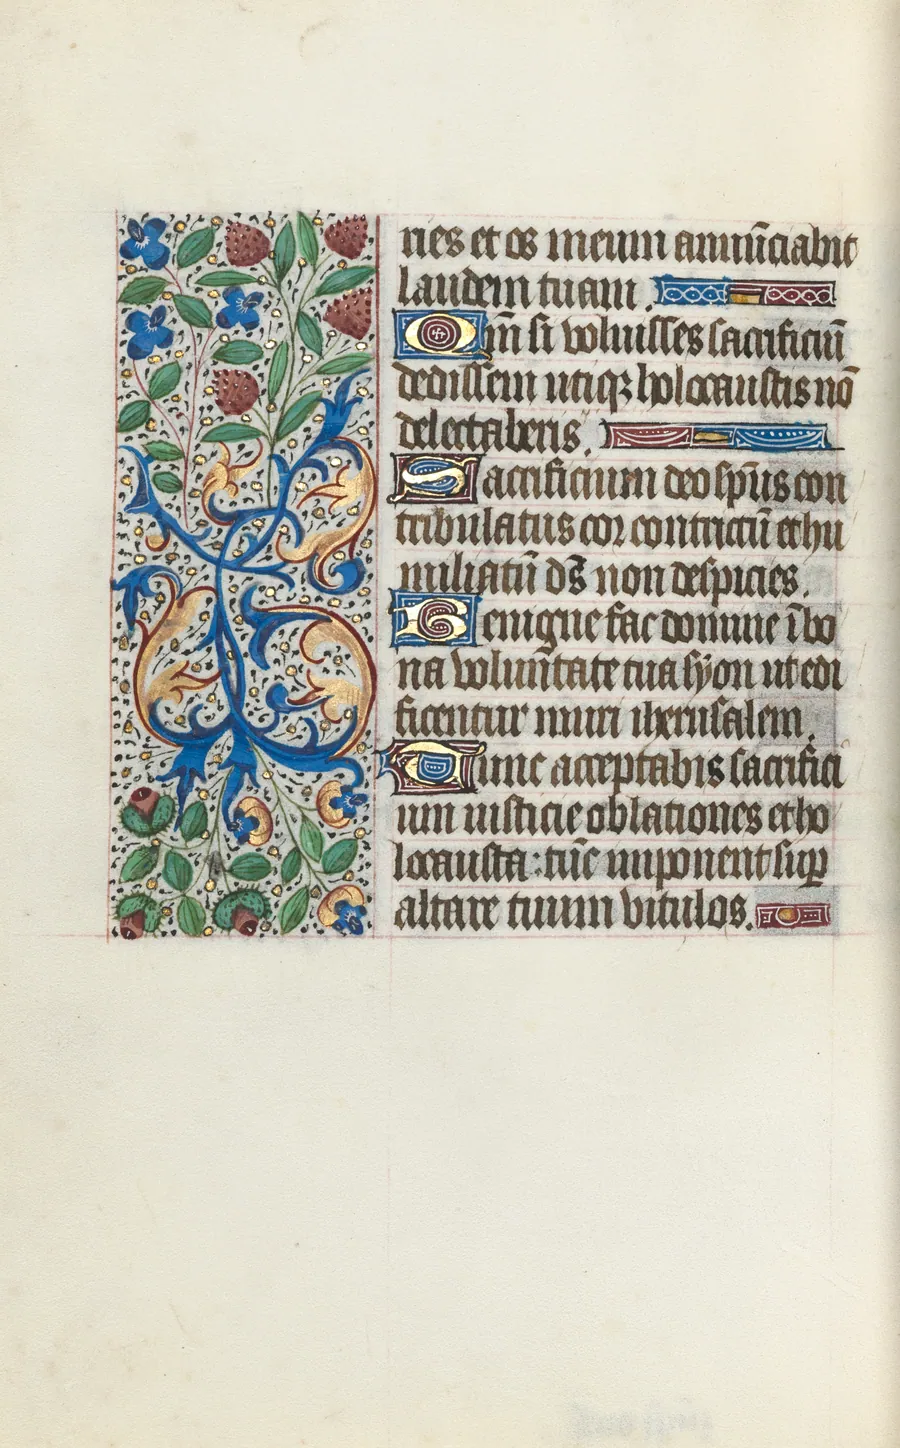 nes et os meum annūciabit
laudem tuam.
Qm̄ si voluisses sacrificiū
dedissem utiqꝫ holocaustis nō
delectaberis.
Sacrificium deo sp̄us con
tribulatus cor contrictū et hu
miliatū ds̄ non despicies.
Benigne fac domine ī bo
na volūntate tua syon ut edi
ficentur muri iherusalem.
Tunc acceptabis sacrifici
um iusticie oblationes et ho
locausta: tūc imponent suꝑ
altare tuum vitulos.